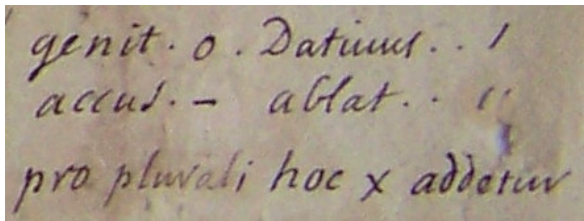 genit. o. Dativus.. ı
accus. – ablat.. ıı
pro plurali hoc x addetur